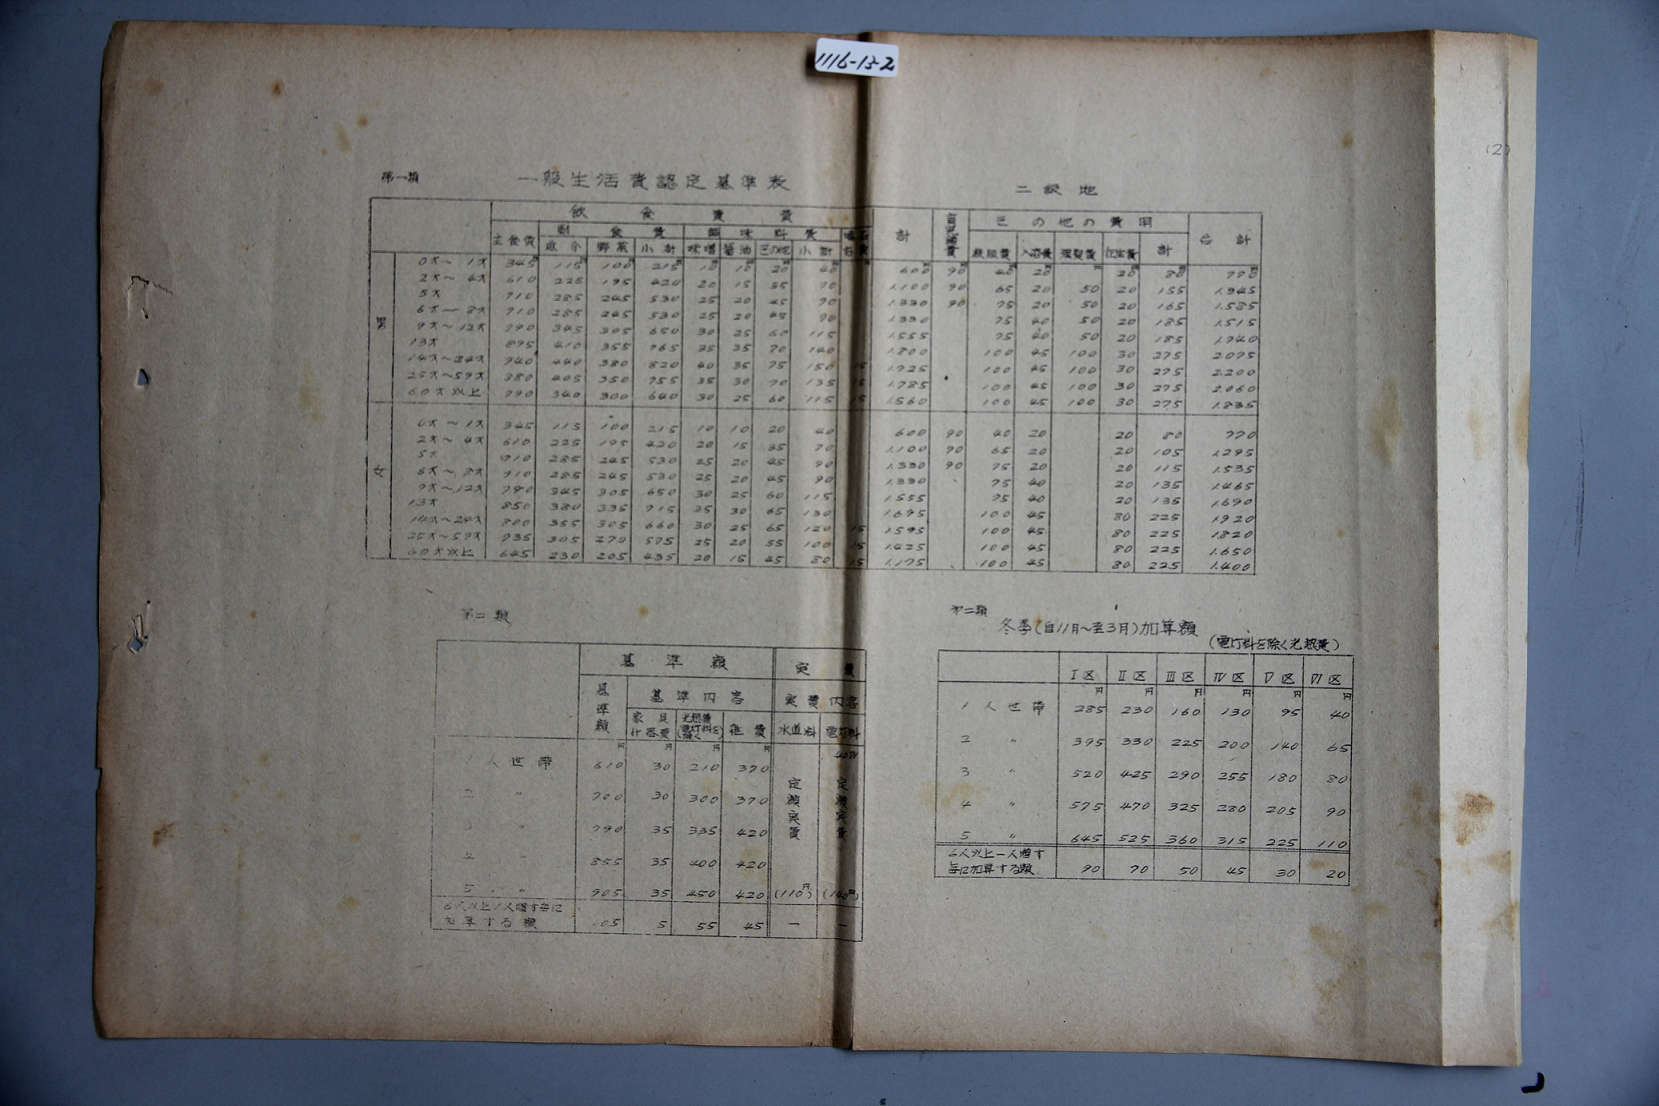 1116-13-2
(2)
第一類 一般生活費認定基準表 二級地
飲食費 計 その他の費用 合計
主食費 副食費 調味料費 計
魚介 野菜 小計 味噌 醤油 その他 小計 被服費 入浴費 理髪費 計
男
0才～1才 345 115 100 215 10 10 20 40 600 90 40 20 20 80 770
2才～4才 610 225 195 420 20 15 35 70 1.100 90 65 20 50 20 155 1.345
5才 710 285 245 530 25 20 45 90 1.330 90 75 20 50 20 165 1.585
6才～8才 710 285 245 530 25 20 45 90 1.330 75 40 50 20 185 1.515
9才～12才 790 345 305 650 30 25 60 115 1.555 75 40 50 20 185 1.740
13才 895 410 355 765 35 35 70 140 1.800 100 45 100 30 275 2.075
14才～24才 940 440 380 820 40 35 75 150 15 1.925 100 45 100 30 275 2.200
25才～59才 880 405 350 755 35 30 70 135 15 1.785 100 45 100 30 275 2.060
60才以上 790 340 300 640 30 25 60 115 15 1.560 100 45 100 30 275 1.835
女
0才～1才 345 115 100 215 10 10 20 40 600 90 40 20 20 80 770
2才～4才 610 225 195 420 20 15 35 70 1.100 90 65 20 20 105 1.295
5才 710 285 245 530 25 20 45 90 1.330 90 75 20 20 115 1.535
6才～8才 710 285 245 530 25 20 45 90 1.330 75 40 20 135 1.465
9才～12才 790 345 305 650 30 25 60 115 1.555 75 40 20 135 1.690
13才 850 380 335 715 35 30 65 130 1.695 100 45 80 225 1.920
14才～24才 800 355 305 660 30 25 65 120 15 1.595 100 45 80 225 1.820
25才～59才 735 305 270 575 25 20 55 100 15 1.425 100 45 80 225 1.650
60才以上 645 230 205 435 20 15 45 80 15 1.175 100 45 80 225 1.400
第二類
基準額 実費
基準額 基準内容 実費内容
家具什器費 光熱費(電灯料を除く) 雑費 水道料 電灯料
円 円 円 円
1人世帯 610 30 210 370
2〃 700 30 300 370
3〃 790 35 335 420
4〃 855 35 400 420
5〃 905 35 450 420 (110円) (140円)
定額実費 定額実費
6人以上1人増す毎に
加算する額 105 5 55 45 ー ー
第二類
冬季(自11月～至3月)加算額
(電灯料を除く光熱費)
I区 II区 III区 IV区 V区 VI区
円 円 円 円 円 円
1人世帯 285 230 160 130 95 40
2〃 395 330 225 200 140 65
3〃 520 425 290 255 180 80
4〃 575 470 325 280 205 90
5〃 645 525 360 315 225 110
6人以上一人増す
毎に加算する額 90 70 50 45 30 20